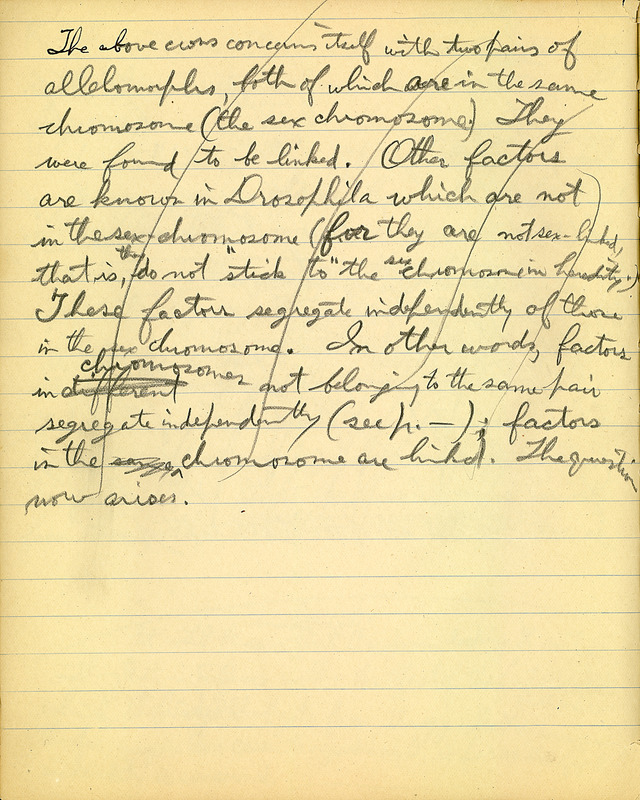 The above cross concerns itself with two pairs of
allelomorphs, both of which are in the same
chromosome (the sex chromosome.) They
were found to be linked. Other factors
are known in Drosophila which are not
in the sex-chromosome (for they are not sex-linked,
that is, they do not "stick to" the sex chromosome in heredity.)
These factors segregate independently of those
in the sex chromosome. In other words, factors
in different chromosomes not belonging to the same pair
segregate independently (see p. —); factors
in the same chromosome are linked. The question
now arises.